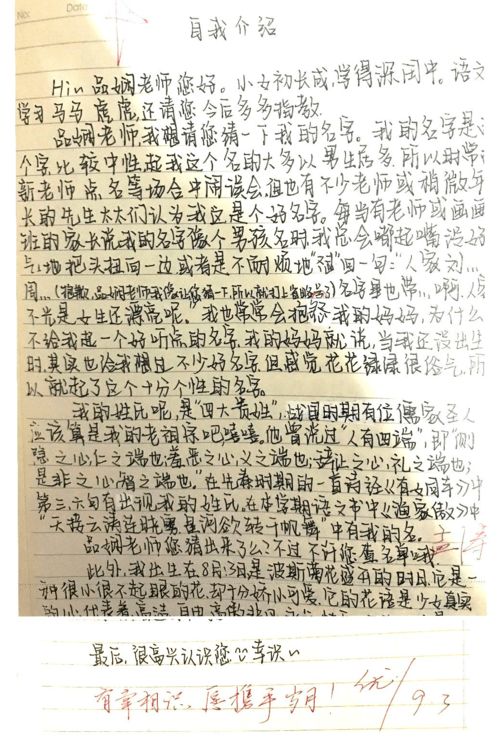 No:
Date
自我介绍
Hi~ 品娴老师您好。小女初长成,学得深闺中。语文
学习马马虎虎,还请您今后多多指教.
品娴老师,我想请您猜一下我的名字。我的名字是
个字,比较中性,起我这个名的大多以男生居多,所以时常
新老师点名等场合中闹误会,但也有不少老师或稍微年
长的先生太太们认为我这是个好名字。每当有老师或画画
班的家长说我的名字像个男孩名时,我总会嘴起嘴没好
气地把头扭向一边或者是不耐烦地“怼”回一句:“人家刘…
周…(抱歉,品娴老师我像让您猜一下,所以就打上省略号了)名字里也带…啊,人
不光是女生还漂亮呢。”我也常常会抱怨我的妈妈,为什么
不给我起一个好听点的名字,我的妈妈就说,当我还没出生
时,其实也给我想过不少好名字,但感觉花花绿绿很俗气,所
以就起了这个十分个性的名字。
我的姓氏呢,是“四大贵姓”,战国时期有位儒家圣人
应该算是我的老祖宗吧嘻嘻。他曾说过“人有四端”,即“恻
隐之心,仁之端也;羞恶之心,义之端也;辞让之心,礼之端也;
是非之心,智之端也”在先秦时期的一首诗经《有女同车》中
第三、六句有出现我的姓氏,在本学期语文书中《渔家傲》中
“天接云涛连晓雾,星河欲转千帆舞”中有我的名。
品娴老师您猜出来了么?不过不许您查名单哦!
孟 涛
此外,我出生在8月,3日是波斯菊花盛开的时日,它是一
种很小很不起眼的花,却十分娇小可爱,它的花语是少女真实
的心,代表着高洁、自由
最后,很高兴认识您 幸识~
有幸相识,愿携手岁月!
优 9.3